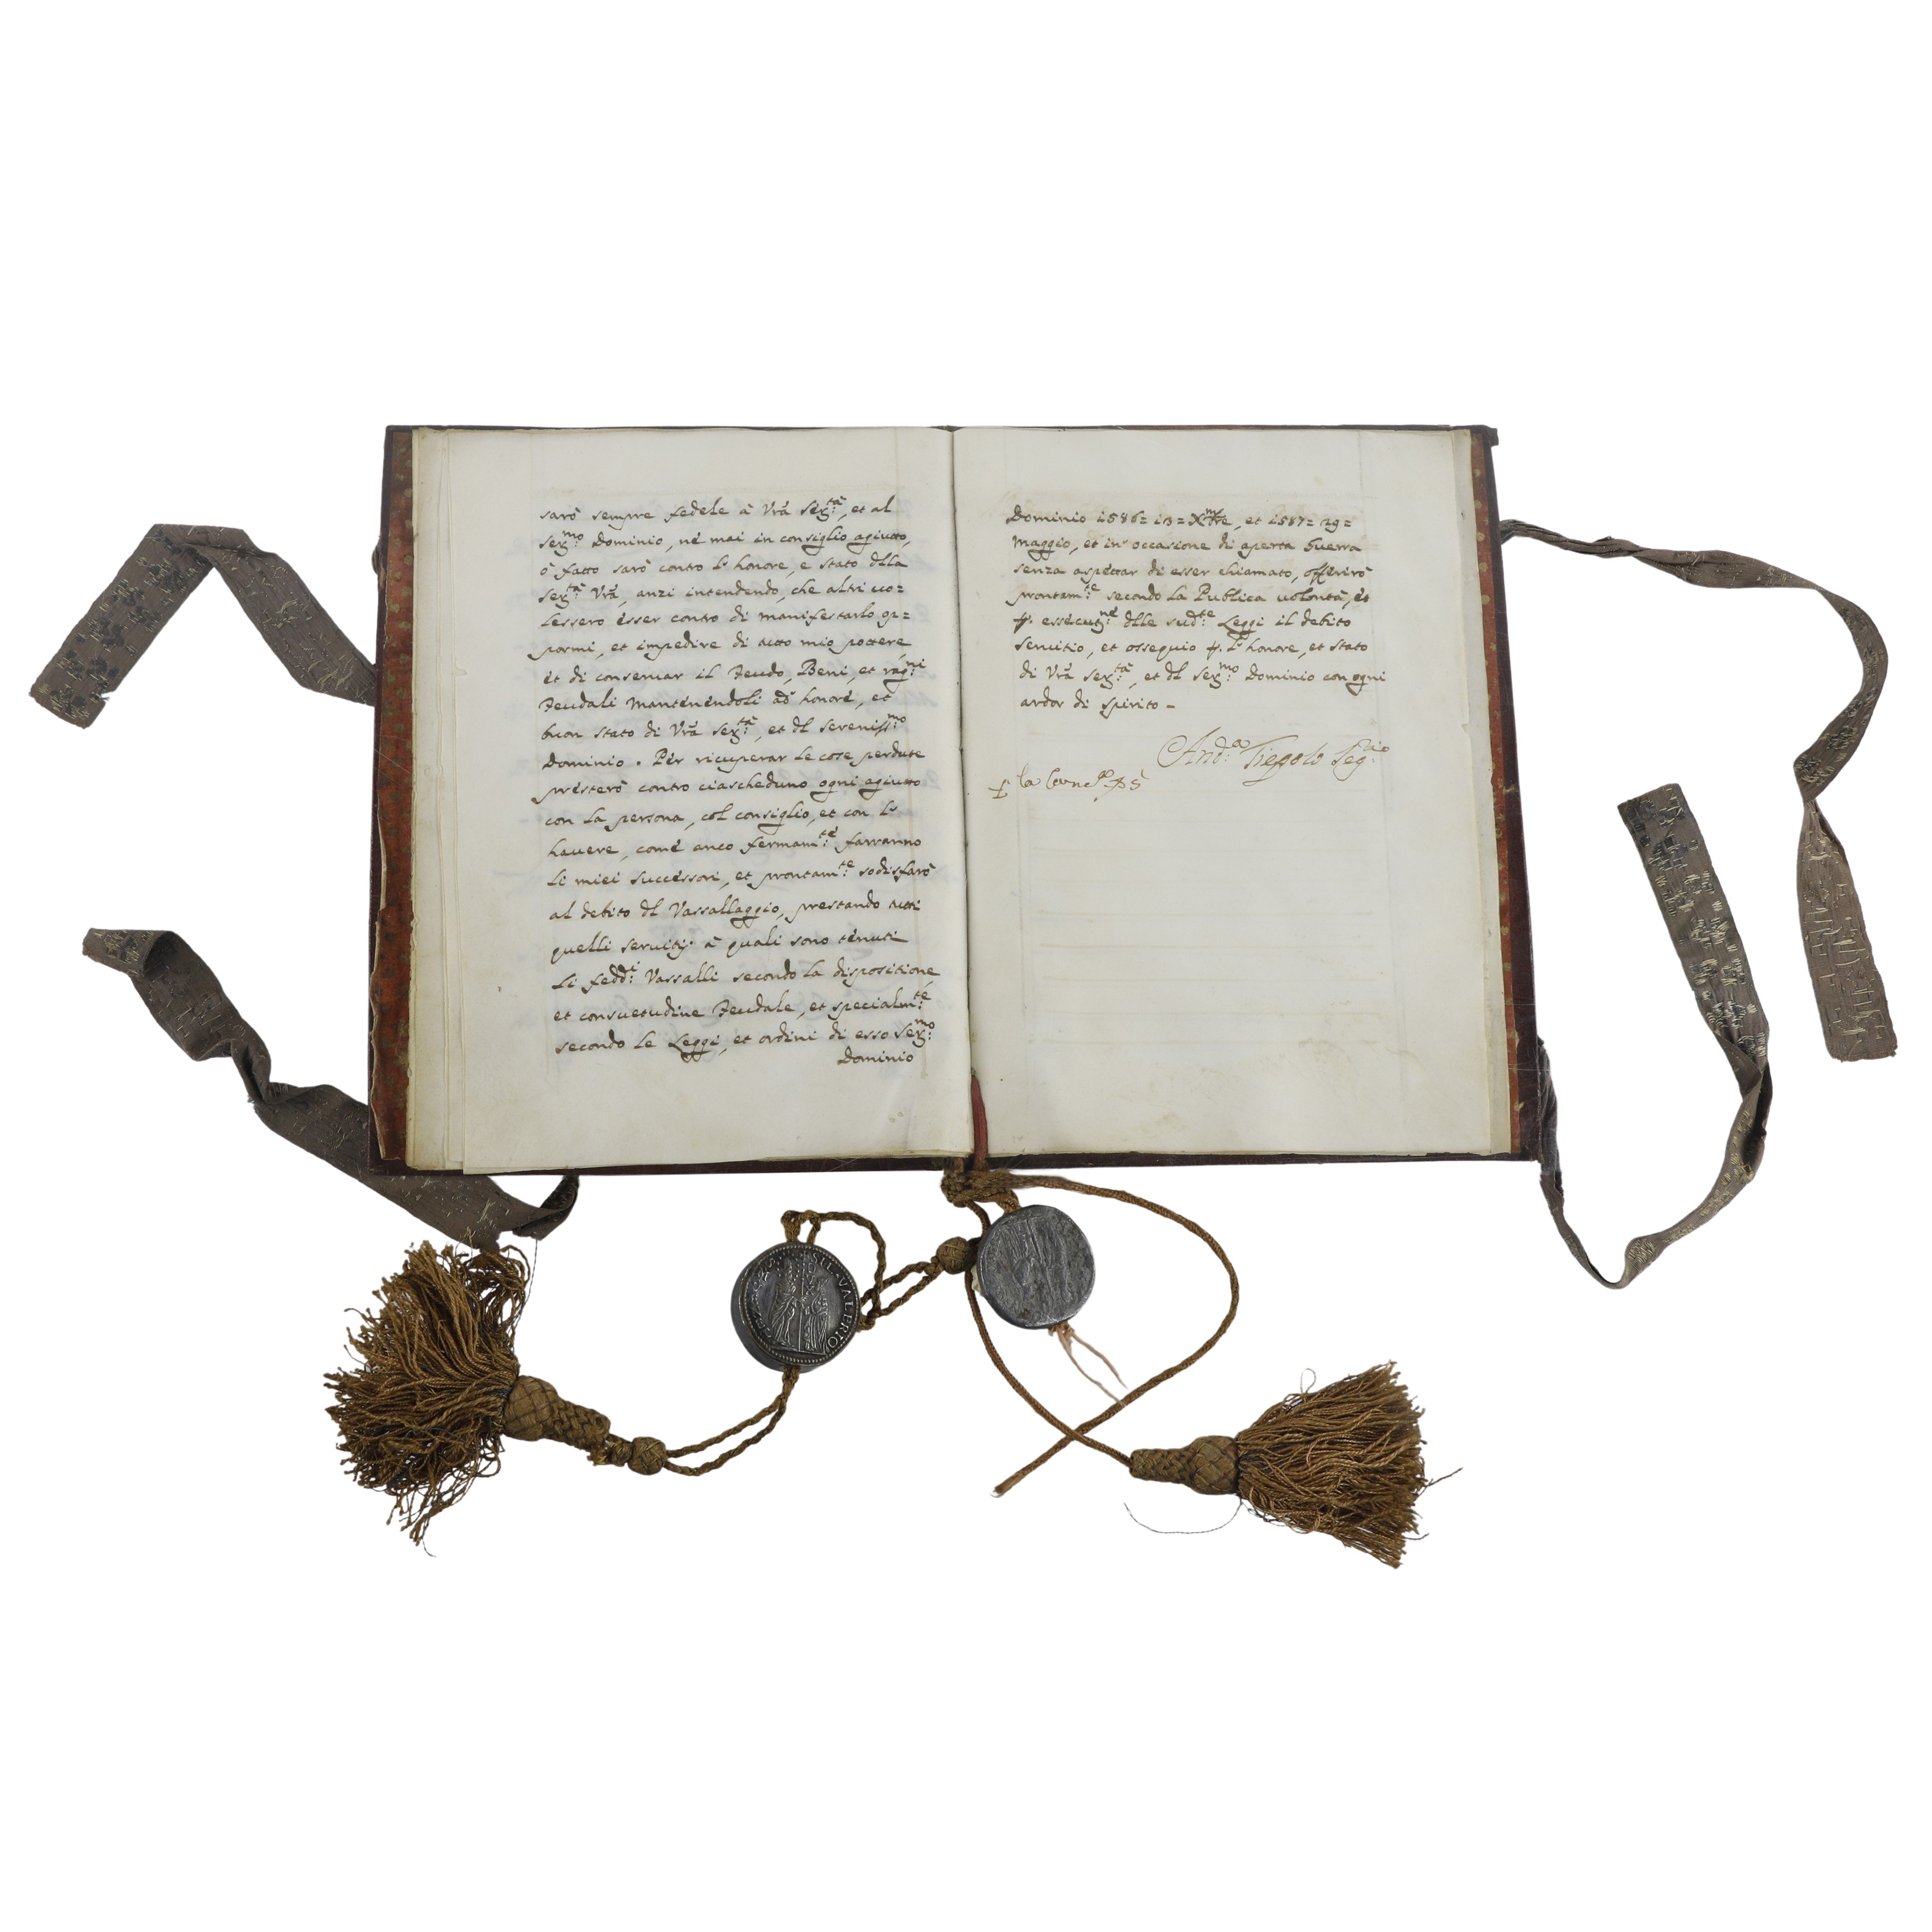 sarò sempre fedele à Vrã Ser:tà, et al
Ser:mo Dominio, né mai in consiglio agiutto,
ò fatto sarò contro l'honore, e stato dlla
Ser:tà Vrã, anzi intendendo, che altri uo=
lessero esser contro di manifestarlo op=
pormi, et impedire di tutto mio pottere
et di conseruar il Feudo, Beni, et rag:ni
Feudali mantenendoli ad honore, et
buon stato di Vrã Ser:tà, et dl Sereniss:mo
Dominio. Per ricuperar le cose perdute
presterò contro ciascheduno ogni agiutto
con la persona, col consiglio, et con l'
hauere, come anco fermam:te farranno
li miei successori, et prontam:te sodisfarò
al debito dl Vassallaggio, prestando tutti
quelli seruitij à quali sono tenuti
li fedd:i Vassalli secondo la dispositione
et consuetudine Feudale, et specialm:te
secondo le Leggi, et ordini di esso Ser:mo
Dominio
Dominio 1586= 13= Xmbre, et 1587= 29=
Maggio, et in occasione di aperta Guerra
senza aspettar di esser chiamato, offerirò
prontam:te secondo la Publica uolontà, et
p. essecut:ne dlle sud:te Leggi il debito
seruitio, et ossequio p. l'honore, et stato
di Vrã Ser:tà, et dl Ser:mo Dominio con ogni
ardor di spirito -
And:a Seg:rio
la
SIL · VALERIO